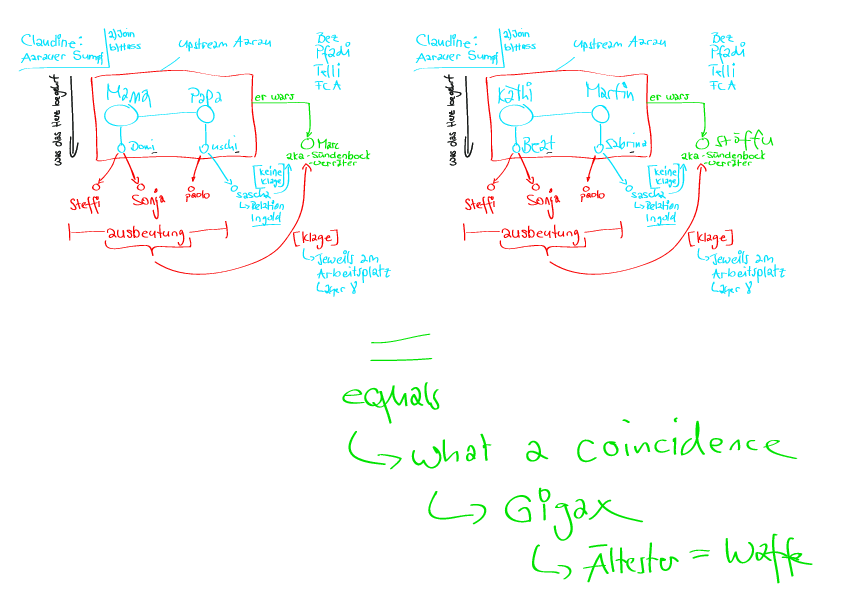 Claudine:
Aarauer Sumpf
a) Join
b) Hess
upstream Aarau
Bez
Pfadi
Telli
FCA
was das Herz begehrt
Mama
Papa
Domi
uschi
er wars
Marc
aka-Sündenbock
-verräter
[keine
Klage]
Steffi
Sonja
paolo
sascha
Relation
Ingold
ausbeutung
[Klage]
Jeweils am
Arbeitsplatz
Claudine:
Aarauer Sumpf
a) Join
b) Hess
upstream Aarau
Bez
Pfadi
Telli
FCA
was das Herz begehrt
Käthi
Martin
Beat
Sabrina
er wars
stöffu
aka-Sündenbock
-verräter
[keine
Klage]
Steffi
Sonja
paolo
sascha
Relation
Ingold
ausbeutung
[Klage]
Jeweils am
Arbeitsplatz
=
equals
what a coincidence
Gigax
Ältester = Waffe